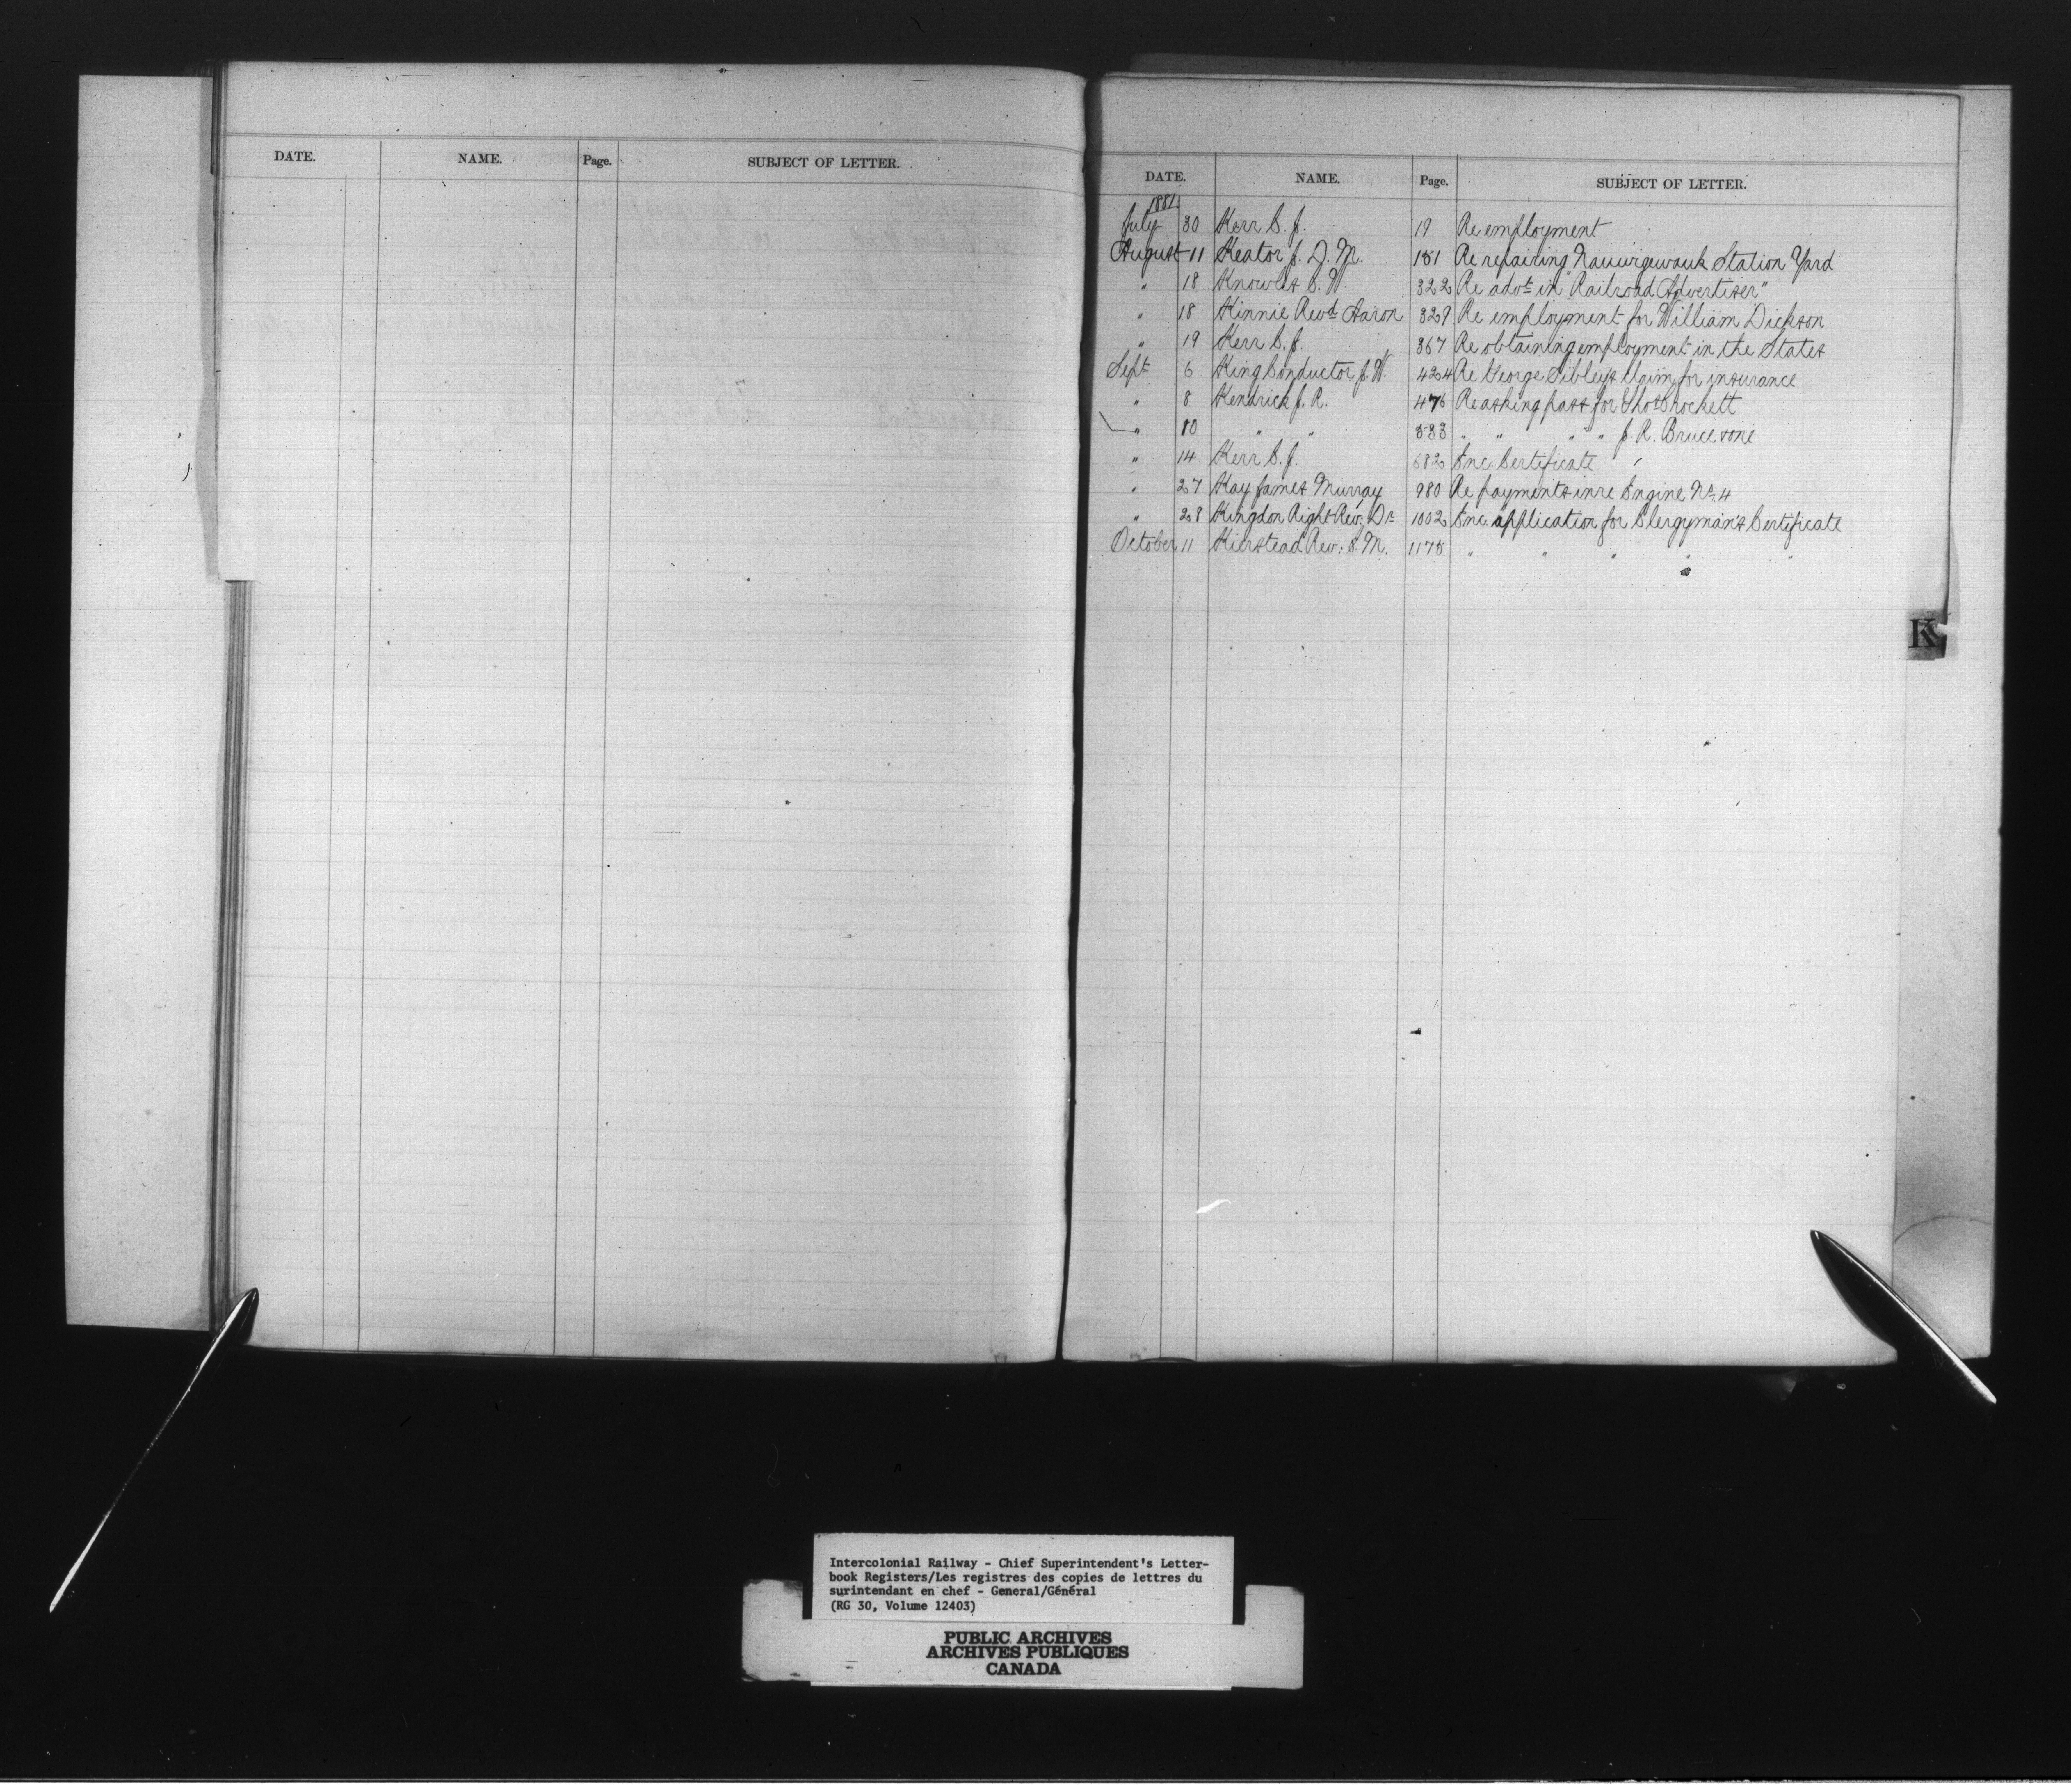 DATE. NAME. Page. SUBJECT OF LETTER.
DATE. NAME. Page. SUBJECT OF LETTER.
1881
July 30 Kerr S. J. 19 Re employment
August 11 Keator J. D. M. 181 Re repairing Nauwigewauk Station Yard
" 18 Knowles S. W. 322 Re advt in "Railroad Advertiser"
" 18 Kinnie Revd Aaron 329 Re employment for William Dickson
" 19 Kerr S. J. 367 Re obtaining employment in the States
Sept 6 King Conductor J. W. 424 Re George Sibleys claim for insurance
" 8 Kendrick J. R. 476 Re asking pass for Thos Brockett
" " " 533 " " " " J. R. Bruce
" 14 Kerr S. J. 682 Enc. Certificate
" 27 Kay James Murray 980 Re payments in re Engine No. 4
" 28 Kingdon Right Rev. Dr 1002 Enc. application for Clergyman's Certificate
October 11 Kierstead Rev. S. M. 1175 " " " " "
K
Intercolonial Railway - Chief Superintendent's Letter-
book Registers/Les registres des copies de lettres du
surintendant en chef - General/Général
(RG 30, Volume 12403)
PUBLIC ARCHIVES
ARCHIVES PUBLIQUES
CANADA